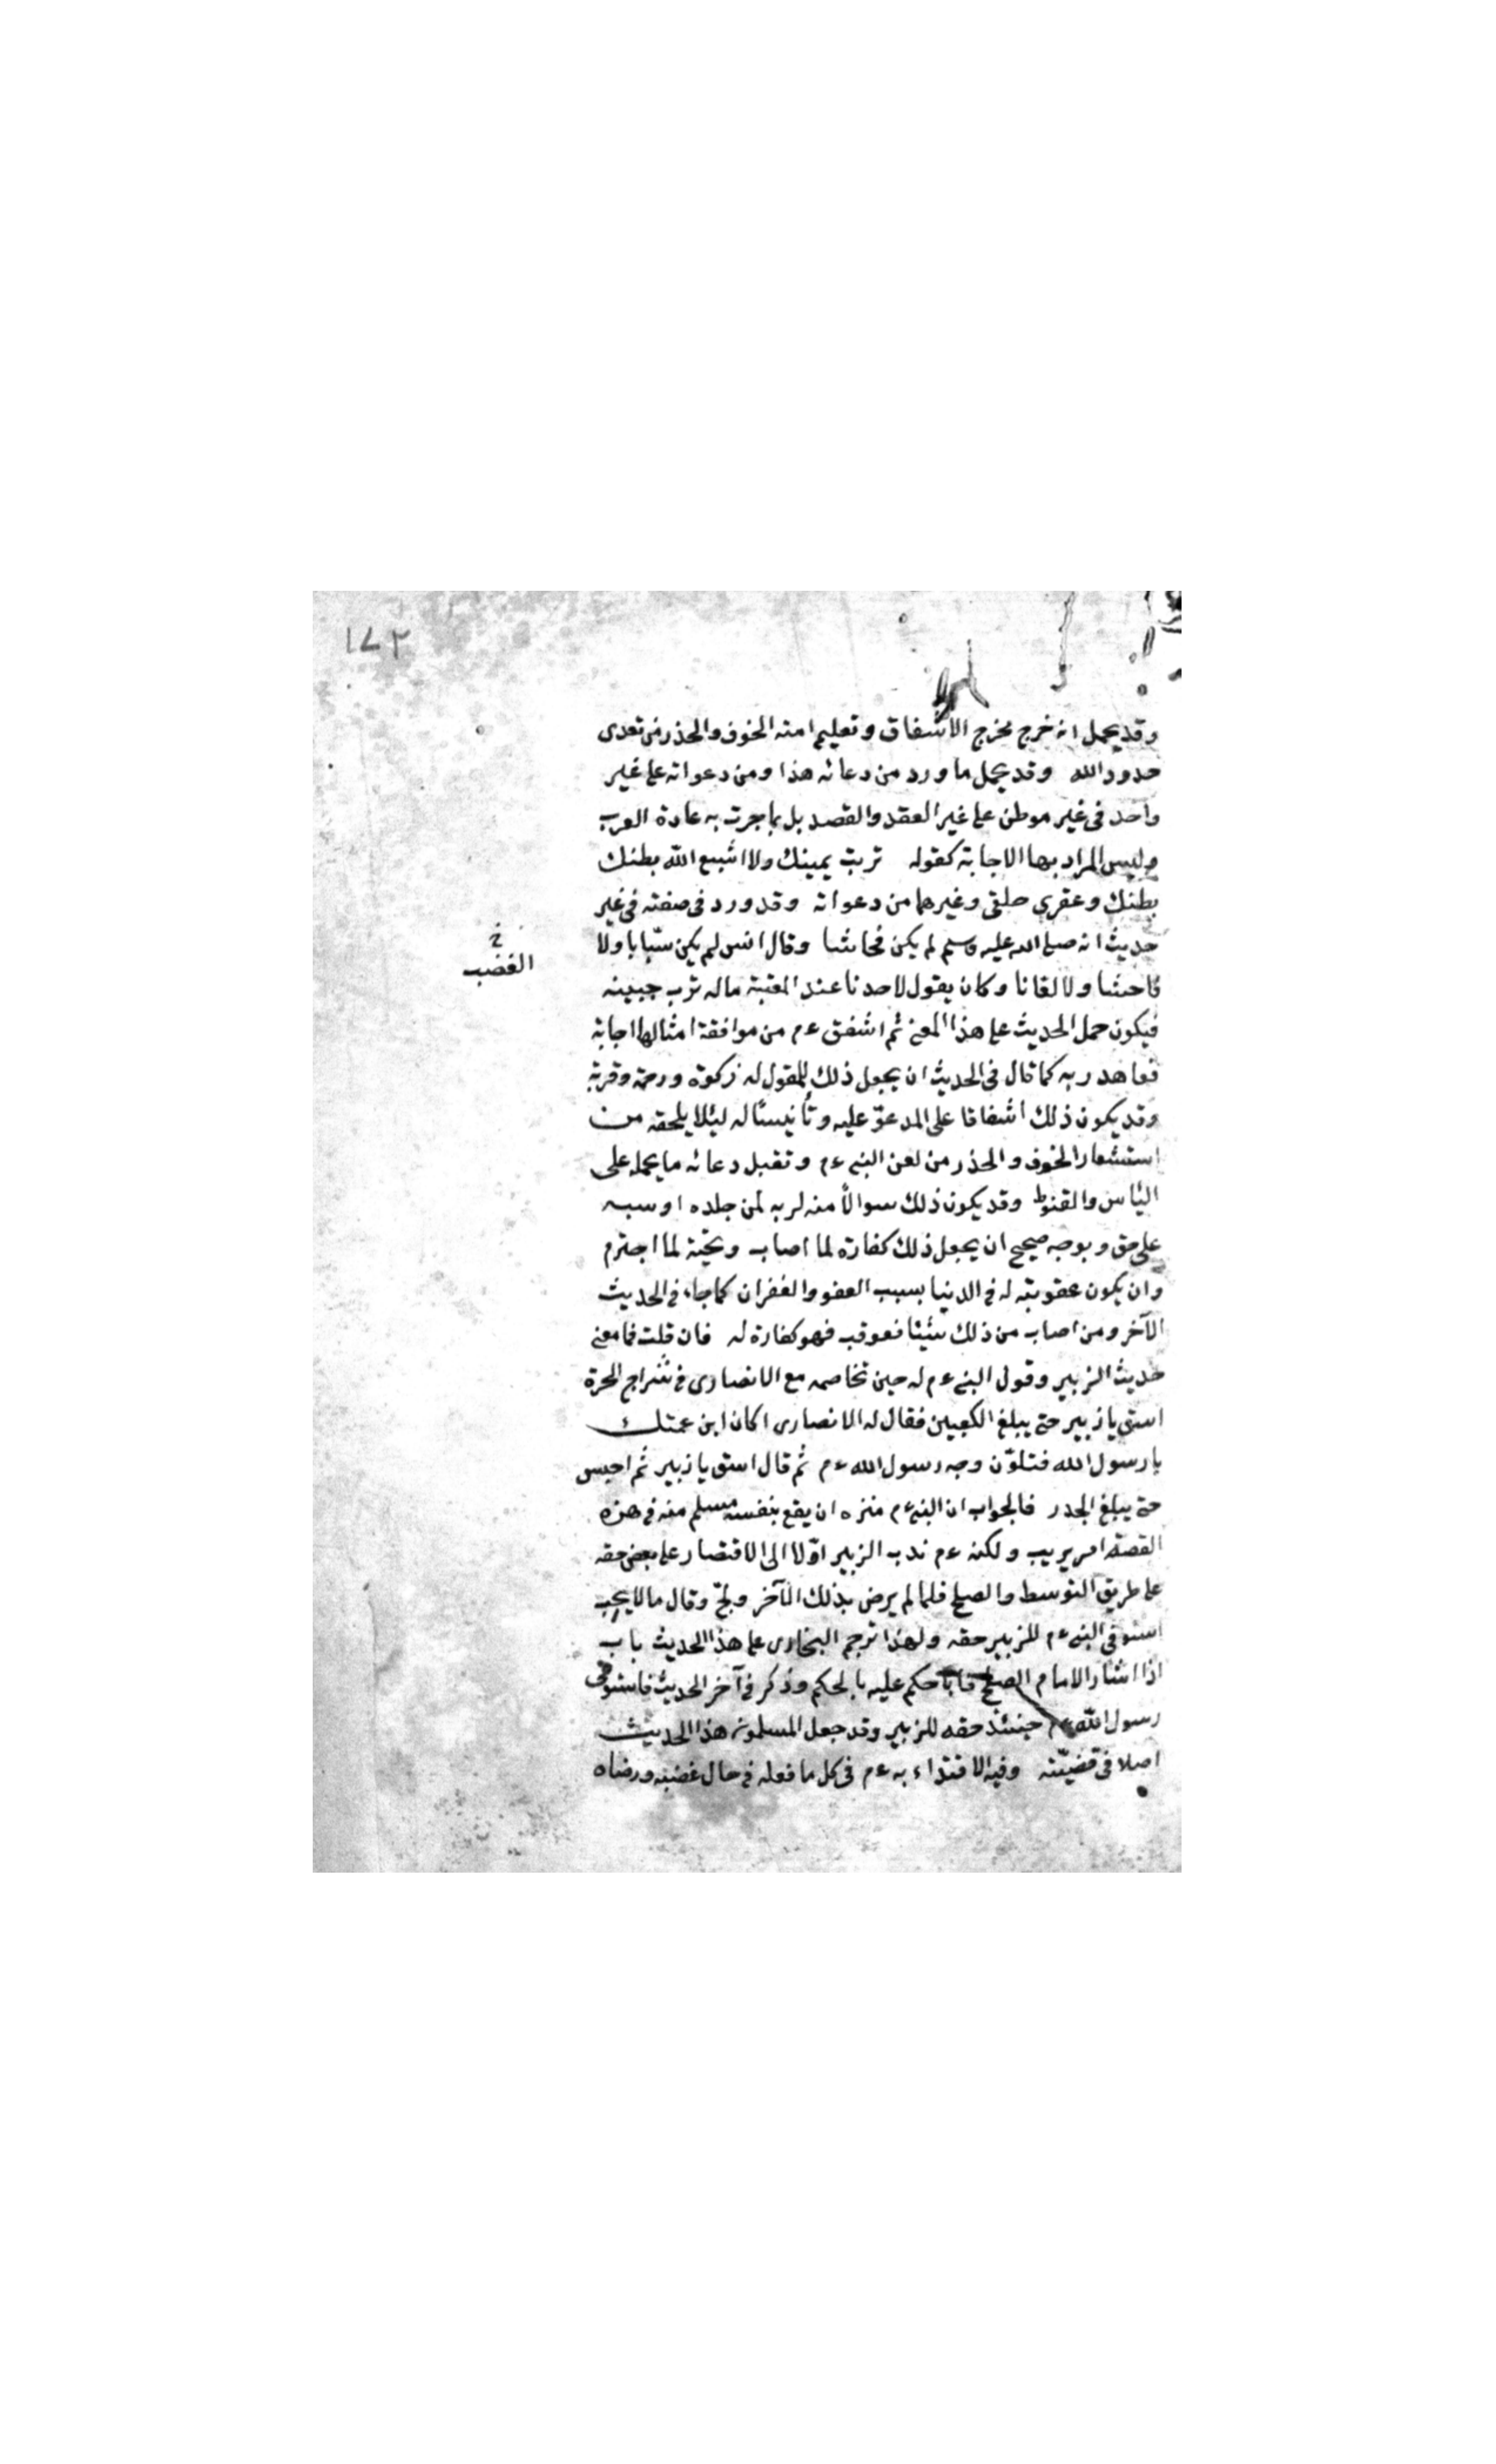 ١٧٢
وقد يحمل انه خرج مخرج الاشفاق وتعليم امته الخوف والحذر من تعدى
حدود الله وقد يحمل ما ورد من دعائه هذا ومن دعواته على غير
واحد فى غير موطن على غير العقد والقصد بل بما جرت به عادة العرب
وليس المراد بها الاجابة كقوله تربت يمينك ولا اشبع الله بطنك
بطنك وعقرى حلقى وغيرهما من دعواته وقد ورد فى صفته فى غير
حديث انه صلى الله عليه وسلم لم يكن فحاشا وقال انس لم يكن سبّابا ولا
فاحشا ولا لعانا وكان يقول لاحدنا عند المعتبة ماله ترب جبينه
خ
الغضب
فيكون حمل الحديث على هذا المعنى ثم اشفق ءم من موافقة امثالها اجابة
فعاهد ربه كما قال فى الحديث ان يجعل ذلك للمقول له زكوة ورحمة وقربة
وقد يكون ذلك اشفاقا على المدعوّ عليه وتأنيسًا له ليئلا يلحقه من
استشعار الخوف والحذر من لعن النبى ءم وتقبل دعائه ما يحمله على
اليأس والقنوط وقد يكون ذلك سوالاً منه لربه لمن جلده او سبه
على حق وبوجه صحيح ان يجعل ذلك كفارة لما اصاب وتحية لما اجترم
وان يكون عقوبته له فى الدنيا بسبب العفو والغفران كما جاء فى الحديث
الآخر ومن اصاب من ذلك شيئا فعوقب فهو كفارة له فان قلت فما معنى
حديث الزبير وقول النبى ءم له حين تخاصمه مع الانصارى فى شراج الحرة
اسق يا زبير حتى يبلغ الكعبين فقال له الانصارى اكان ابن عمتك
يا رسول الله فتلوّن وجه رسول الله ءم ثم قال اسق يا زبير ثم احبس
حتى يبلغ الجدر فالجواب ان النبى ءم منزه ان يقع بنفس مسلم منه فى هذه
القصة امر يريب ولكنه ءم ندب الزبير اوّلا الى الاقتصار على بعض حقه
على طريق التوسط والصلح فلما لم يرض بذلك الآخر ولجّ وقال ما لا يجب
استوفى النبى ءم للزبير حقه ولهذا ترجم البخارى على هذا الحديث باب
اذا اشار الامام الصلح فابا حكم عليه بالحكم وذكر فى آخر الحديث فاستوفى
رسول الله ءم حينئذ حقه للزبير وقد جعل المسلمون هذا الحديث
اصلا فى قضيّته وفيه الاقتداء به ءم فى كل ما فعله فى حال غضبه ورضاه